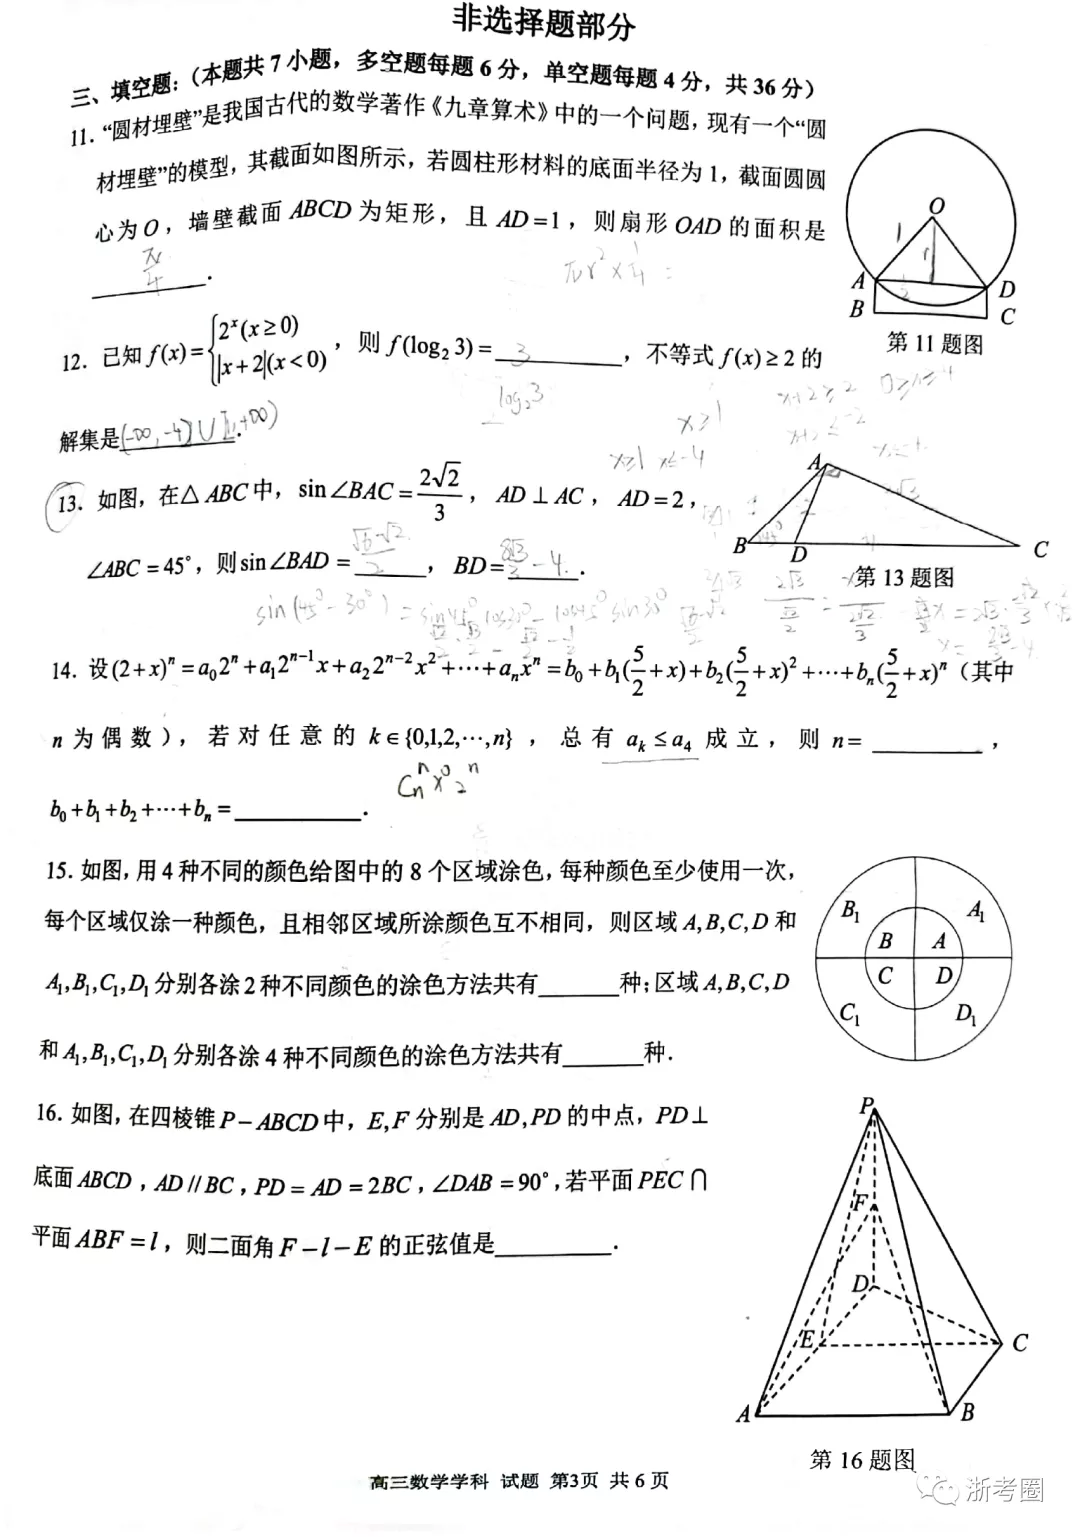 非选择题部分
三、填空题:(本题共7小题,多空题每题6分,单空题每题4分,共36分)
11. “圆材埋壁”是我国古代的数学著作《九章算术》中的一个问题,现有一个“圆
材埋壁”的模型,其截面如图所示,若圆柱形材料的底面半径为1,截面圆圆
心为O,墙壁截面 ABCD 为矩形,且 AD=1,则扇形 OAD 的面积是
π/4 .
πr²×1/4 =
O
1
r
A
D
B
C
第11题图
12. 已知 f(x)={2^x(x≥0) |x+2|(x<0),则 f(log₂3)= 3 ,不等式 f(x)≥2 的
log₂3
x+2≥2
x≥1
x≥1 x≤-4
解集是(-∞,-4]∪[1,+∞).
13. 如图,在△ABC中,sin∠BAC=2√2/3,AD⊥AC,AD=2,
∠ABC=45°,则sin∠BAD=(√6-√2)/2,BD=8√3/3-4.
A
B
D
C
第13题图
sin(45°-30°)=sin45°cos30°-cos45°sin30°
14. 设(2+x)ⁿ=a₀2ⁿ+a₁2ⁿ⁻¹x+a₂2ⁿ⁻²x²+⋯+aₙxⁿ=b₀+b₁(5/2+x)+b₂(5/2+x)²+⋯+bₙ(5/2+x)ⁿ(其中
n为偶数),若对任意的 k∈{0,1,2,⋯,n},总有 aₖ≤a₄ 成立,则 n=________,
Cₙⁿx⁰2ⁿ
b₀+b₁+b₂+⋯+bₙ=________.
15. 如图,用4种不同的颜色给图中的8个区域涂色,每种颜色至少使用一次,
每个区域仅涂一种颜色,且相邻区域所涂颜色互不相同,则区域A,B,C,D和
A₁,B₁,C₁,D₁分别各涂2种不同颜色的涂色方法共有______种;区域A,B,C,D
和A₁,B₁,C₁,D₁分别各涂4种不同颜色的涂色方法共有______种.
B₁
A₁
B
A
C
D
C₁
D₁
16. 如图,在四棱锥P-ABCD中,E,F分别是AD,PD的中点,PD⊥
底面ABCD,AD//BC,PD=AD=2BC,∠DAB=90°,若平面PEC∩
平面ABF=l,则二面角F-l-E的正弦值是________.
P
F
D
E
C
A
B
第16题图
高三数学学科 试题 第3页 共6页
浙考圈